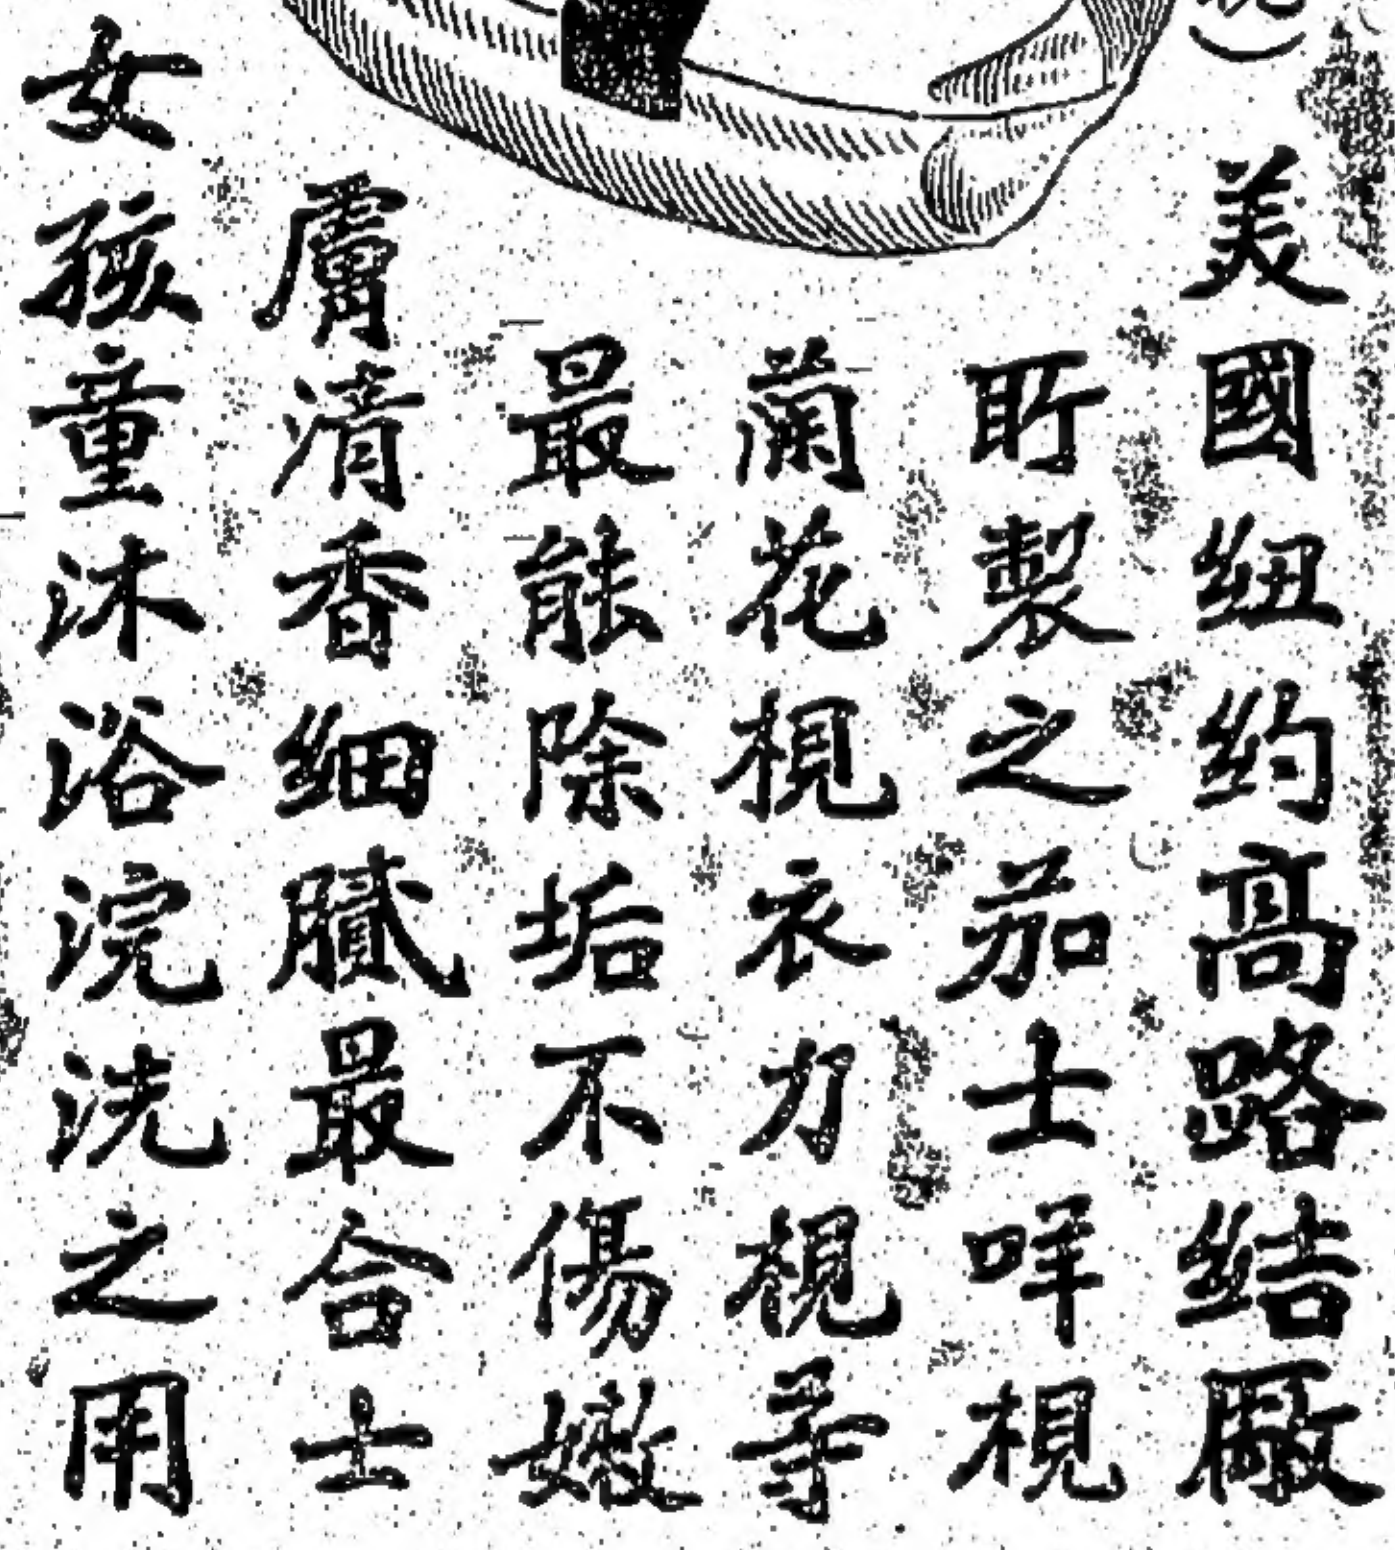 美國紐約高路結厰
所製之茄士咩梘
蘭花梘衣力梘等
最能除垢不傷嫩
膚清香細膩最合士
女孩童沐浴浣洗之用